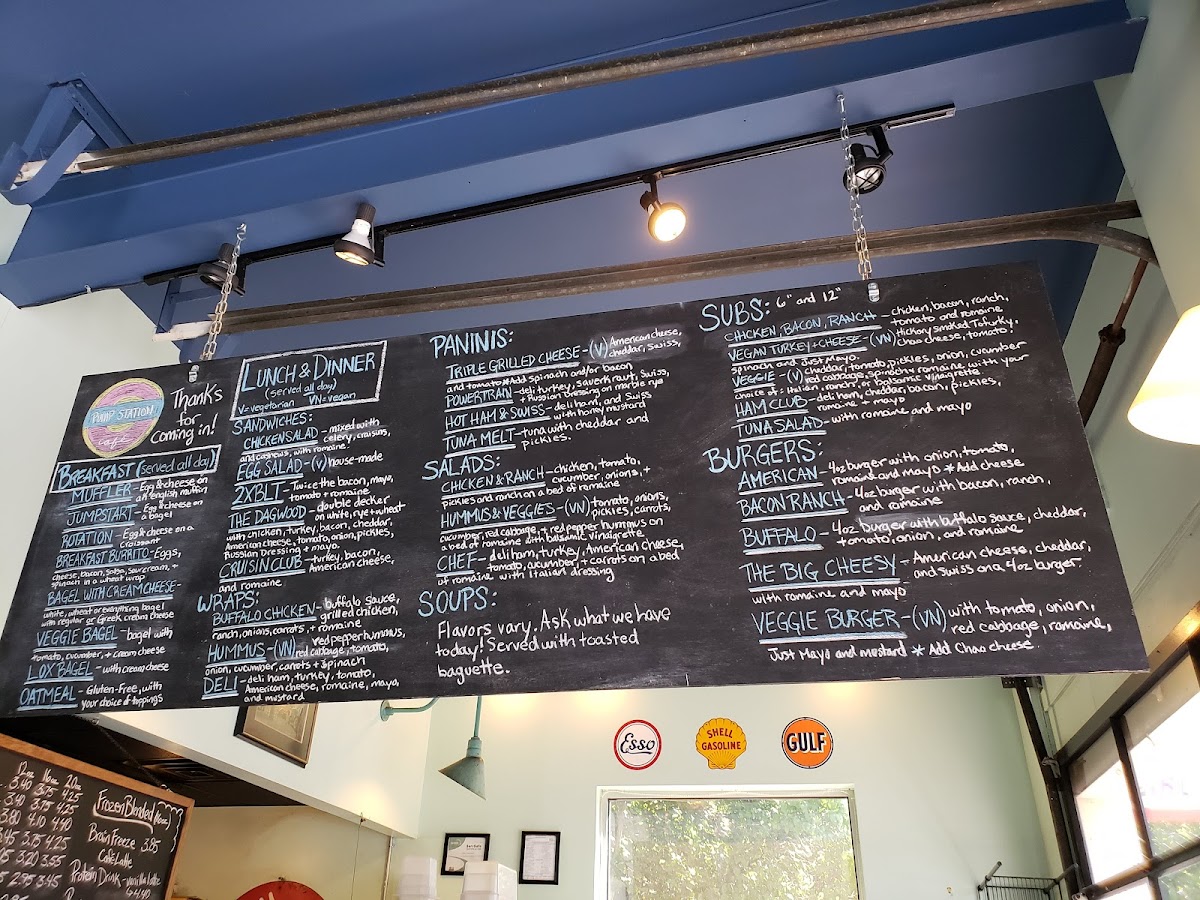 PUMP STATION
Cafe
Thanks
for
coming in!
BREAKFAST (served all day)
MUFFLER - Egg & cheese on
an english muffin
JUMPSTART - Egg & cheese on
a bagel
ROTATION - Egg & cheese on a
Croissant
BREAKFAST BURRITO - Eggs,
cheese, bacon, salsa, sour cream, +
spinach in a wheat wrap
BAGEL WITH CREAM CHEESE -
white, wheat or everything bagel
with regular or Greek cream cheese
VEGGIE BAGEL - bagel with
tomato, cucumber, + cream cheese
LOX BAGEL - with cream cheese
OATMEAL - Gluten-Free, with
your choice of toppings
LUNCH & DINNER
(served all day)
V=vegetarian VN=vegan
SANDWICHES:
CHICKEN SALAD - mixed with
celery, craisins,
and cashews, with romaine.
EGG SALAD - (V) house-made
2XBLT - Twice the bacon, mayo,
tomato + romaine
THE DAGWOOD - double decker
on white, rye + wheat
with chicken, turkey, bacon, cheddar,
American cheese, tomato, onion, pickles,
Russian Dressing + mayo.
CRUISIN CLUB - turkey, bacon,
American cheese,
and romaine
WRAPS:
BUFFALO CHICKEN - buffalo sauce,
grilled chicken,
ranch, onions, carrots, + romaine
HUMMUS - (VN) red pepper hummus,
red cabbage, tomato,
onion, cucumber, carrots + spinach
DELI - deli ham, turkey, tomato,
American cheese, romaine, mayo,
and mustard
PANINIS:
TRIPLE GRILLED CHEESE - (V) American cheese,
cheddar, swiss,
and tomato * Add spinach and/or bacon
POWERTRAIN - deli turkey, sauerkraut, swiss,
+ Russian dressing on marble rye
HOT HAM & SWISS - deli ham, and Swiss
with honey mustard
TUNA MELT - tuna with cheddar and
pickles.
SALADS:
CHICKEN & RANCH - chicken, tomato,
cucumber, onions, +
pickles and ranch on a bed of romaine
HUMMUS & VEGGIES - (VN) tomato, onions,
pickles, carrots,
cucumber, red cabbage, + red pepper hummus on
a bed of romaine with balsamic vinaigrette
CHEF - deli ham, turkey, American cheese,
tomato, cucumber, + carrots on a bed
of romaine with Italian dressing
SOUPS:
Flavors vary. Ask what we have
today! Served with toasted
baguette.
SUBS: 6" and 12"
CHICKEN, BACON, RANCH - chicken, bacon, ranch,
tomato and romaine
VEGAN TURKEY + CHEESE - (VN) Hickory smoked Tofurky,
chao cheese, tomato,
spinach and Just Mayo.
VEGGIE - (V) cheddar, tomato, pickles, onion, cucumber
red cabbage, spinach + romaine with your
choice of: Italian, ranch, or balsamic vinaigrette
HAM CLUB - deli ham, cheddar, bacon, pickles,
romaine + mayo
TUNA SALAD - with romaine and mayo
BURGERS:
AMERICAN - 4oz burger with onion, tomato,
romaine and mayo * Add cheese
BACON RANCH - 4oz burger with bacon, ranch,
and romaine
BUFFALO - 4oz burger with buffalo sauce, cheddar,
tomato, onion, and romaine
THE BIG CHEESY - American cheese, cheddar,
and swiss on a 4oz burger
with romaine and mayo
VEGGIE BURGER - (VN) with tomato, onion,
red cabbage, romaine,
Just Mayo and mustard * Add Chao cheese.
Esso
SHELL
GASOLINE
GULF
12oz 16oz 20oz
3.40 3.75 4.25
3.40 3.75 4.25
3.80 4.10 4.40
3.45 3.75 4.25
3.20 3.55
2.95 3.45
Frozen Blended (16oz)
Brain Freeze 3.85
Café Latte
Protein Drink - vanilla latte
4.40